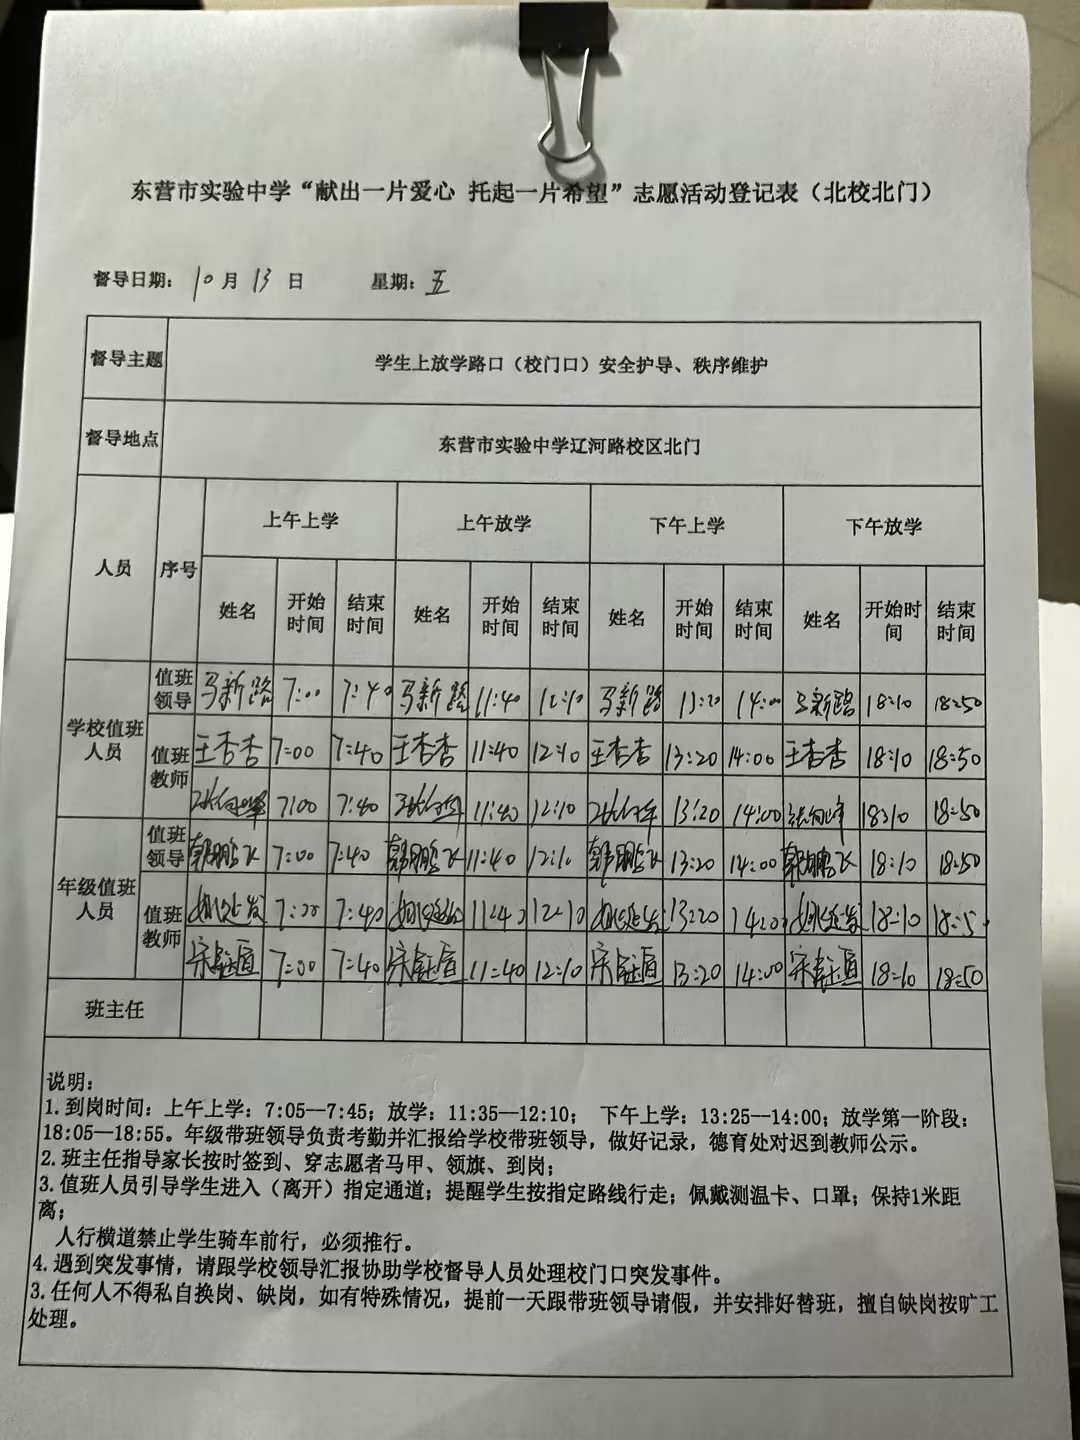 东营市实验中学“献出一片爱心 托起一片希望”志愿活动登记表（北校北门）
督导日期： 10 月 13 日 星期： 五
督导主题 学生上放学路口（校门口）安全护导、秩序维护
督导地点 东营市实验中学辽河路校区北门
人员 序号 上午上学 上午放学 下午上学 下午放学
姓名 开始时间 结束时间 姓名 开始时间 结束时间 姓名 开始时间 结束时间 姓名 开始时间 结束时间
学校值班人员 值班领导 马新路 7:00 7:40 马新路 11:40 12:10 马新路 13:20 14:00 马新路 18:10 18:50
值班教师 王杏杏 7:00 7:40 王杏杏 11:40 12:10 王杏杏 13:20 14:00 王杏杏 18:10 18:50
7:00 7:40 11:40 12:10 13:20 14:00 18:10 18:50
年级值班人员 值班领导 郭鹏飞 7:00 7:40 郭鹏飞 11:40 12:10 郭鹏飞 13:20 14:00 郭鹏飞 18:10 18:50
值班教师 7:00 7:40 11:40 12:10 13:20 14:00 18:10 18:50
7:00 7:40 11:40 12:10 13:20 14:00 18:10 18:50
班主任
说明：
1. 到岗时间：上午上学：7:05—7:45；放学：11:35—12:10； 下午上学：13:25—14:00；放学第一阶段：
18:05—18:55。年级带班领导负责考勤并汇报给学校带班领导，做好记录，德育处对迟到教师公示。
2. 班主任指导家长按时签到、穿志愿者马甲、领旗、到岗；
3. 值班人员引导学生进入（离开）指定通道；提醒学生按指定路线行走；佩戴测温卡、口罩；保持1米距
离；
人行横道禁止学生骑车前行，必须推行。
4. 遇到突发事情，请跟学校领导汇报协助学校督导人员处理校门口突发事件。
3. 任何人不得私自换岗、缺岗，如有特殊情况，提前一天跟带班领导请假，并安排好替班，擅自缺岗按旷工
处理。